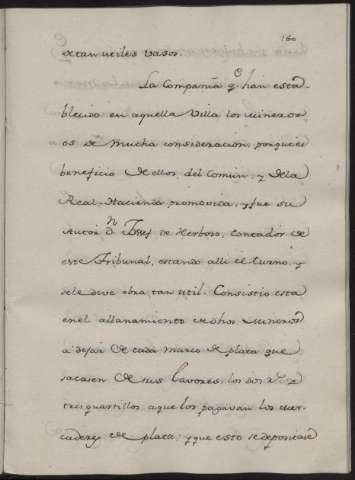 160
extan utiles vasos.
La Compañia q̃ han esta-
blecido en aquella Villa los Mineros
es de mucha consideracion, porque el
beneficio de ellos, del Comun, y de la
Real Hacienda promovida, y fue su
Autor Dn Josef de Herboso, Contador de
este Tribunal, estando alli el turno, y
se le deve obra tan util. Consistio esta
en el allanamiento dhos Mineros
a dejar de cada marco de plata que
sacasen de sus labores, los dos rs. y
tres quartillos, a que los pagavan los mer-
caderes de plata; y que esto se depositase